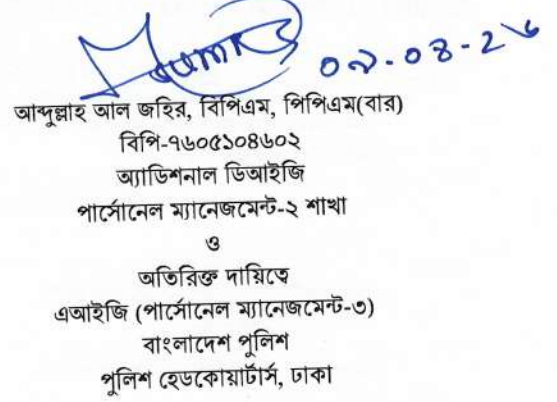 ০৯-০৪-২৬
আব্দুল্লাহ আল জহির, বিপিএম, পিপিএম(বার)
বিপি-৭৬০৫১০৪৬০২
অ্যাডিশনাল ডিআইজি
পার্সোনেল ম্যানেজমেন্ট-২ শাখা
ও
অতিরিক্ত দায়িত্বে
এআইজি (পার্সোনেল ম্যানেজমেন্ট-৩)
বাংলাদেশ পুলিশ
পুলিশ হেডকোয়ার্টার্স, ঢাকা